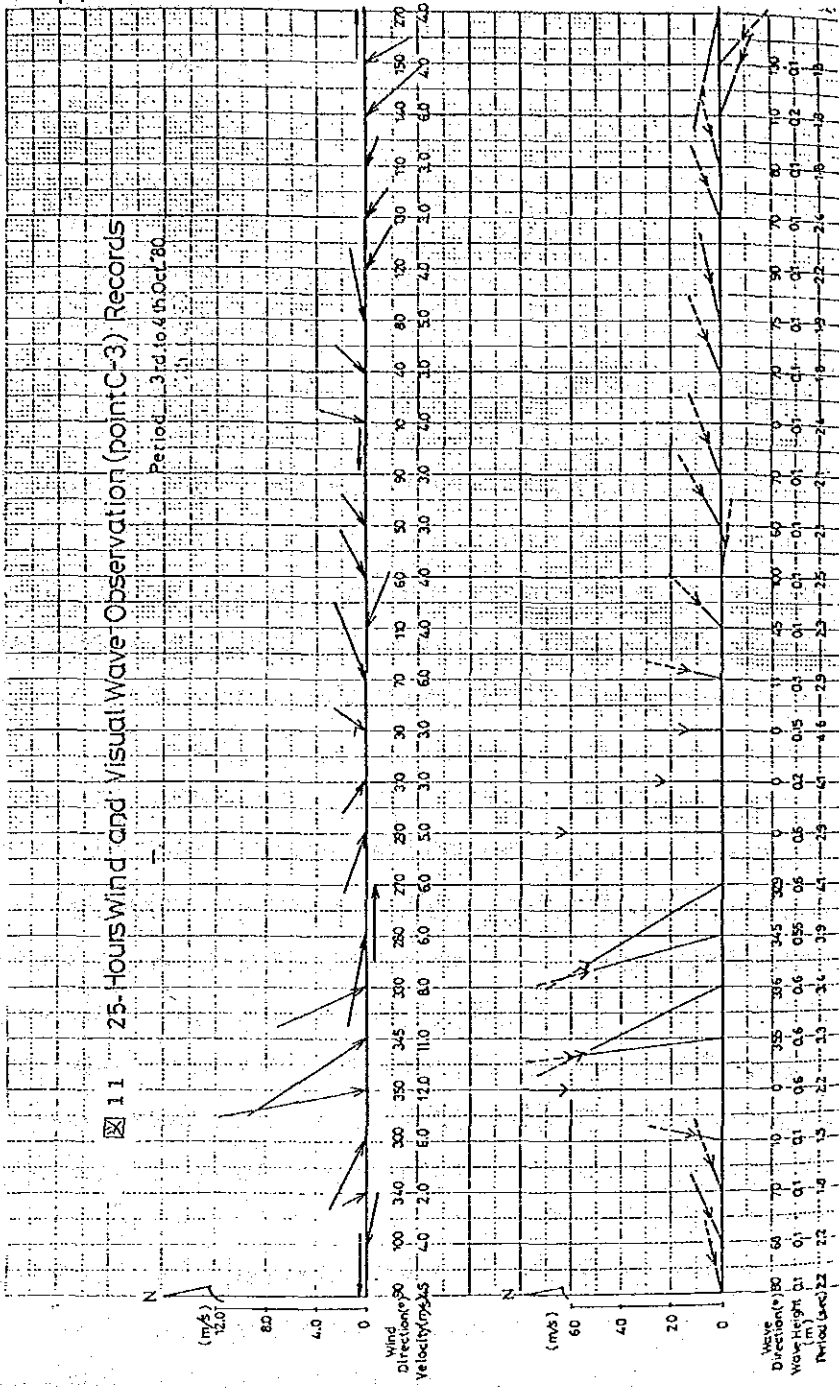 図 11 25-Hours Wind and Visual Wave Observation (point C-3) Records
Period 3rd to 4th Oct. '80
N
(m/s)
12.0
8.0
4.0
0
Wind Direction(°) 90 100 340 300 350 345 330 280 270 290 310 30 70 110 60 50 90 10 40 80 120 130 110 140 150 270
Velocity(m/s) 4.5 4.0 2.0 6.0 12.0 11.0 8.0 6.0 6.0 5.0 3.0 3.0 6.0 4.0 4.0 3.0 3.0 4.0 3.0 5.0 4.0 3.0 3.0 6.0 4.0 4.0
N
(m/s)
60
40
20
0
Wave Direction(°) 80 68 70 10 0 355 336 345 329 0 0 0 11 45 100 60 70 0 70 75 90 70 80 110 130
Wave Height (m) 0.1 0.1 0.1 0.1 0.6 0.6 0.6 0.55 0.6 0.6 0.2 0.15 0.3 0.1 0.1 0.1 0.1 0.1 0.1 0.1 0.1 0.1 0.1 0.2 0.1
Period (sec) 2.2 2.2 1.8 1.5 2.2 3.3 3.4 3.9 4.1 2.9 4.1 4.6 2.9 2.3 2.5 2.1 2.4 1.8 1.9 2.2 2.4 1.8 1.8 1.8